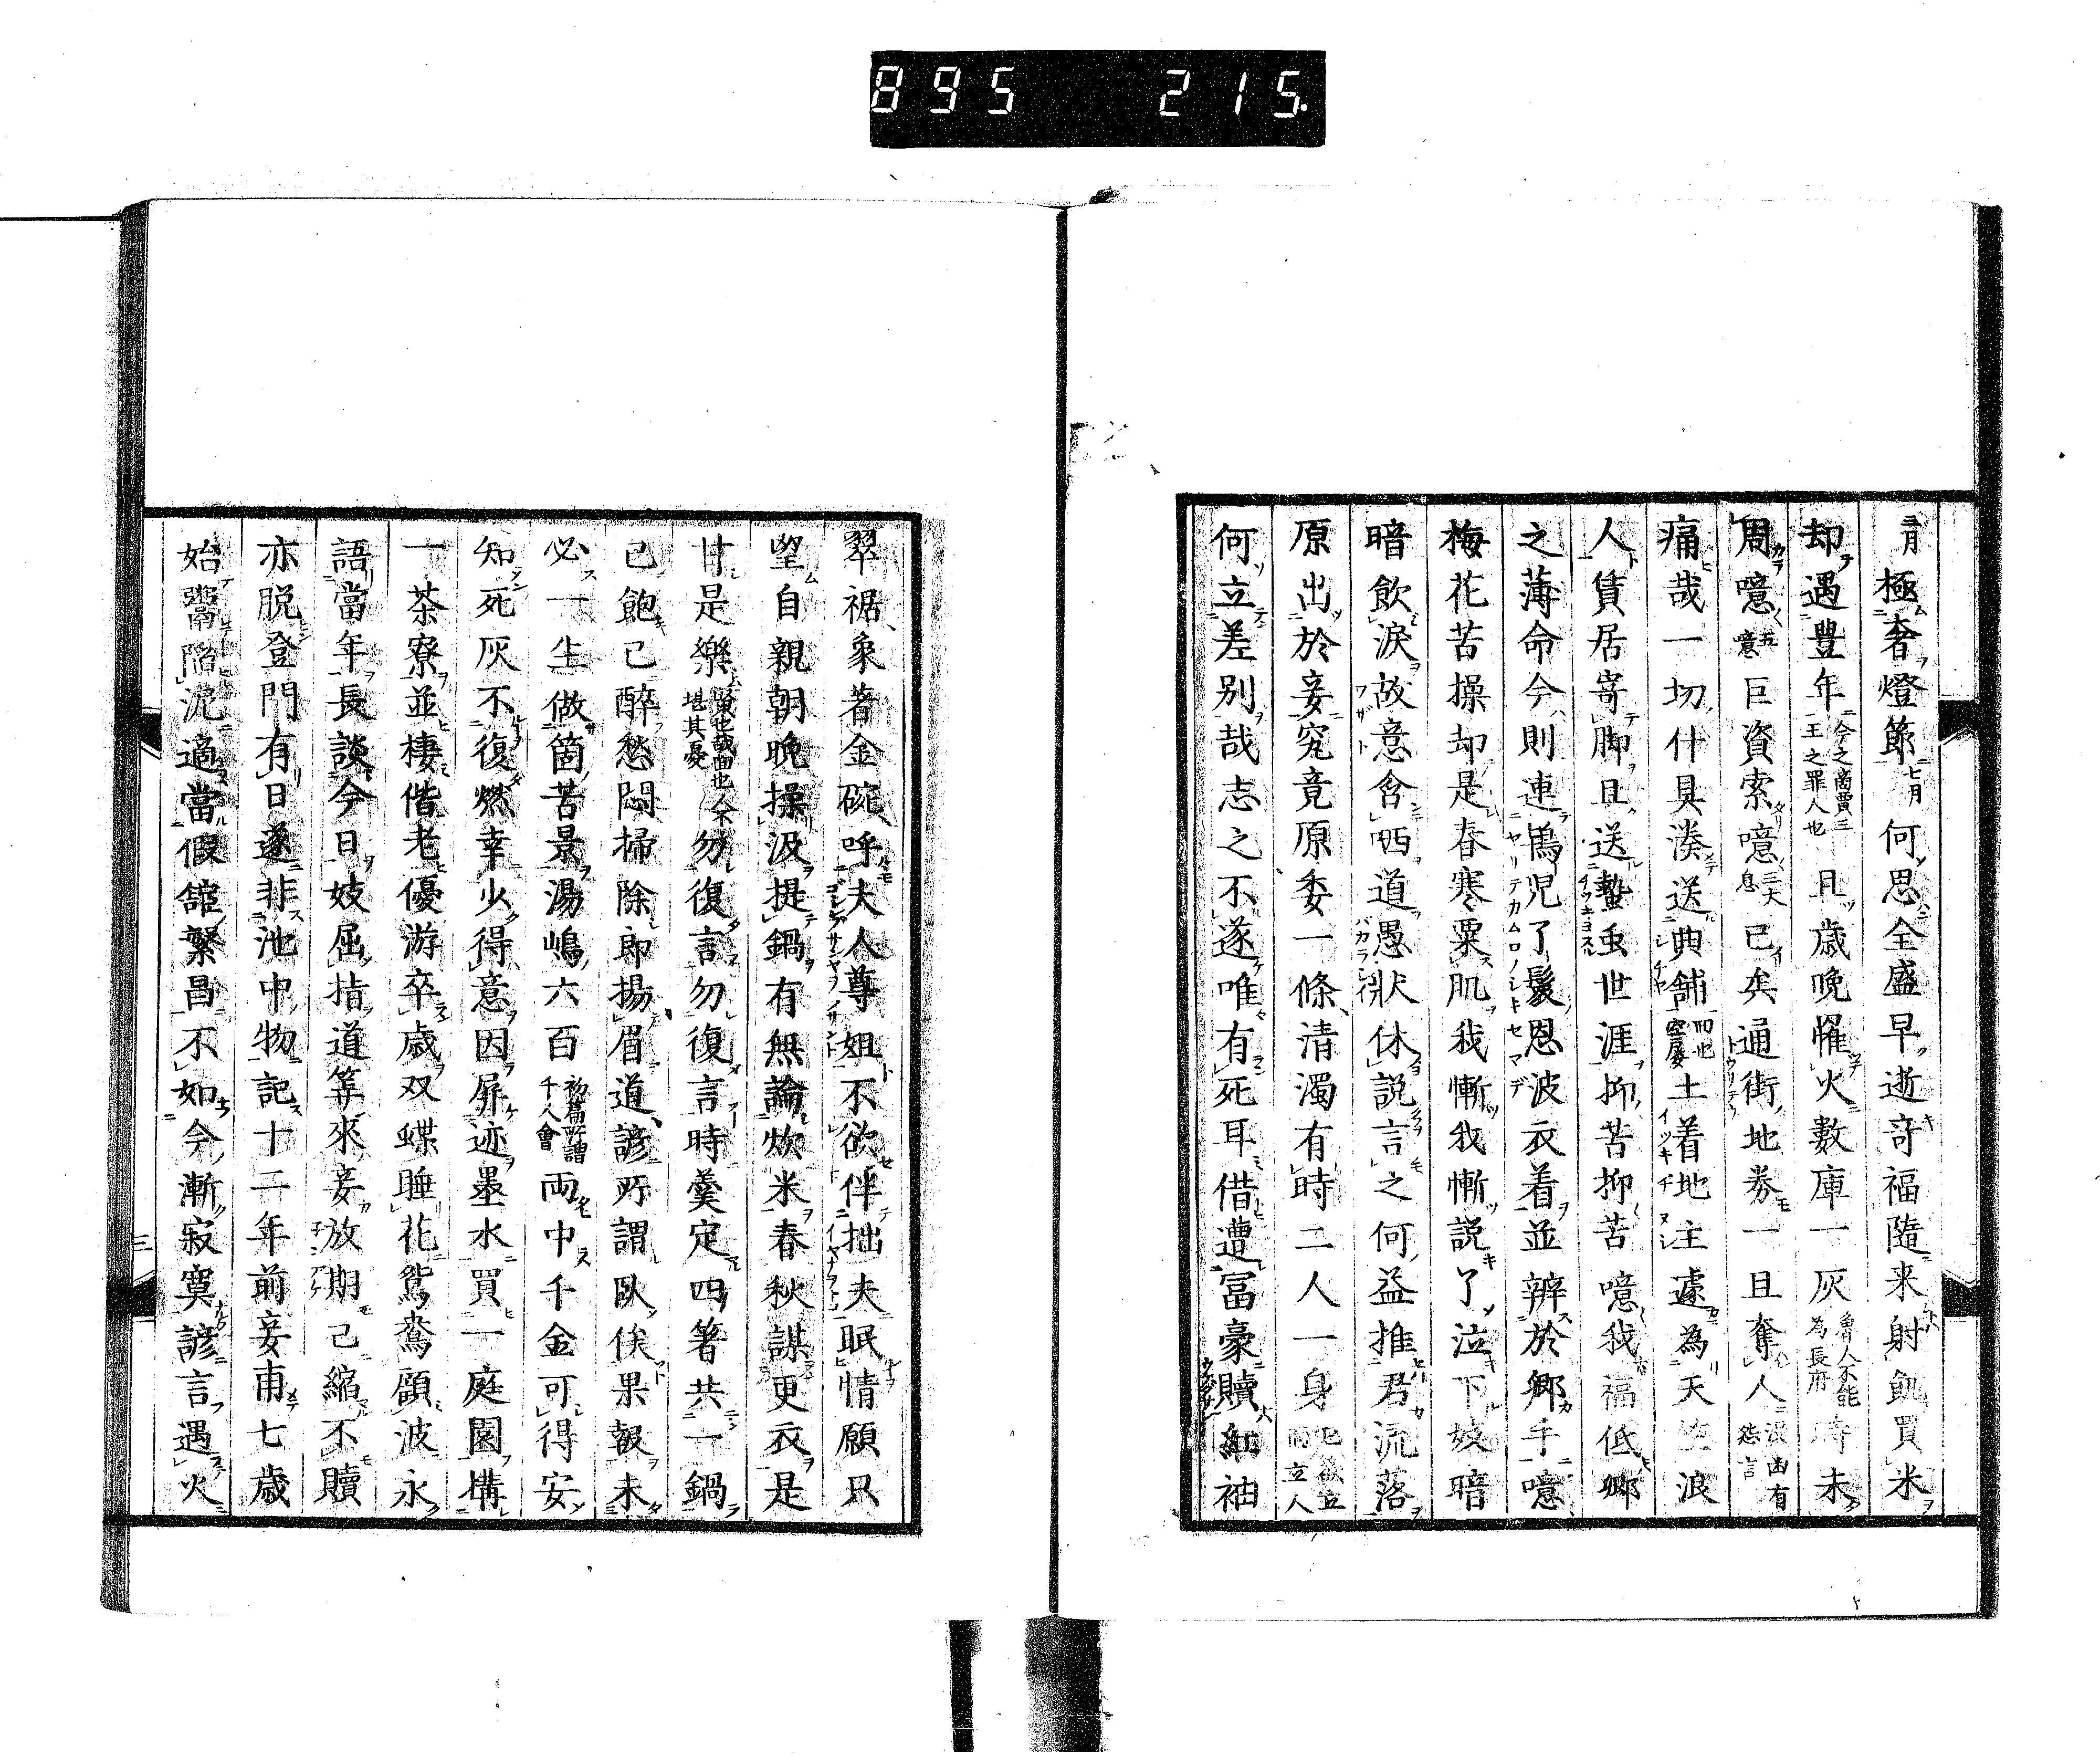 895 215.
三月極奢燈節七月何思全盛早逝奇福隨来射飢買米
却遇豊年今之商賈三王之罪人也且歳晩罹火數庫一灰魯人不能為長府時未
周噫五噫巨資索噫三大息已矣通街地券一旦奪人没歯有怨言
痛哉一切什具湊送典舗而也空屡土着地主遽為天涯浪
人賃居寄脚且送蟄虫世涯抑苦抑苦噫我福低郷
之薄命今則連鴇児了髪恩波衣着並辨於郷手噫
梅花苦操却是春寒粟肌我慚我慚説了泣下妓暗
暗飲涙故意含哂道愚状休説言之何益推君流落
原出於妾究竟原委一條清濁有時二人一身己欲立而立人
何立差別哉志之不遂唯有死耳借遭冨豪贖紅袖
翠裾象著金碗呼夫人尊姐不欲伴拙夫眠情願只
望自親朝晩操汲提鍋有無論炊米春秋謀更衣是
甘是樂賢也哉面也人不堪其憂勿復言勿復言時羹定四箸共一鍋
已飽已醉愁悶掃除郎揚眉道諺所謂臥俟果報未
必一生做箇苦景湯嶋六百初篇所謂千人會両中千金可得安
知死灰不復燃幸火得意因屏迹墨水買一庭園構
一茶寮並棲偕老優游卒歳双蝶睡花鴛鴦顧波永
語當年長談今日妓屈指道筭來妾放期已縮不贖
亦脱登門有日遂非池中物記十二年前妾甫七歳
始鬻陥泥適當假舘繁昌不如今漸寂寞諺言遇火
三